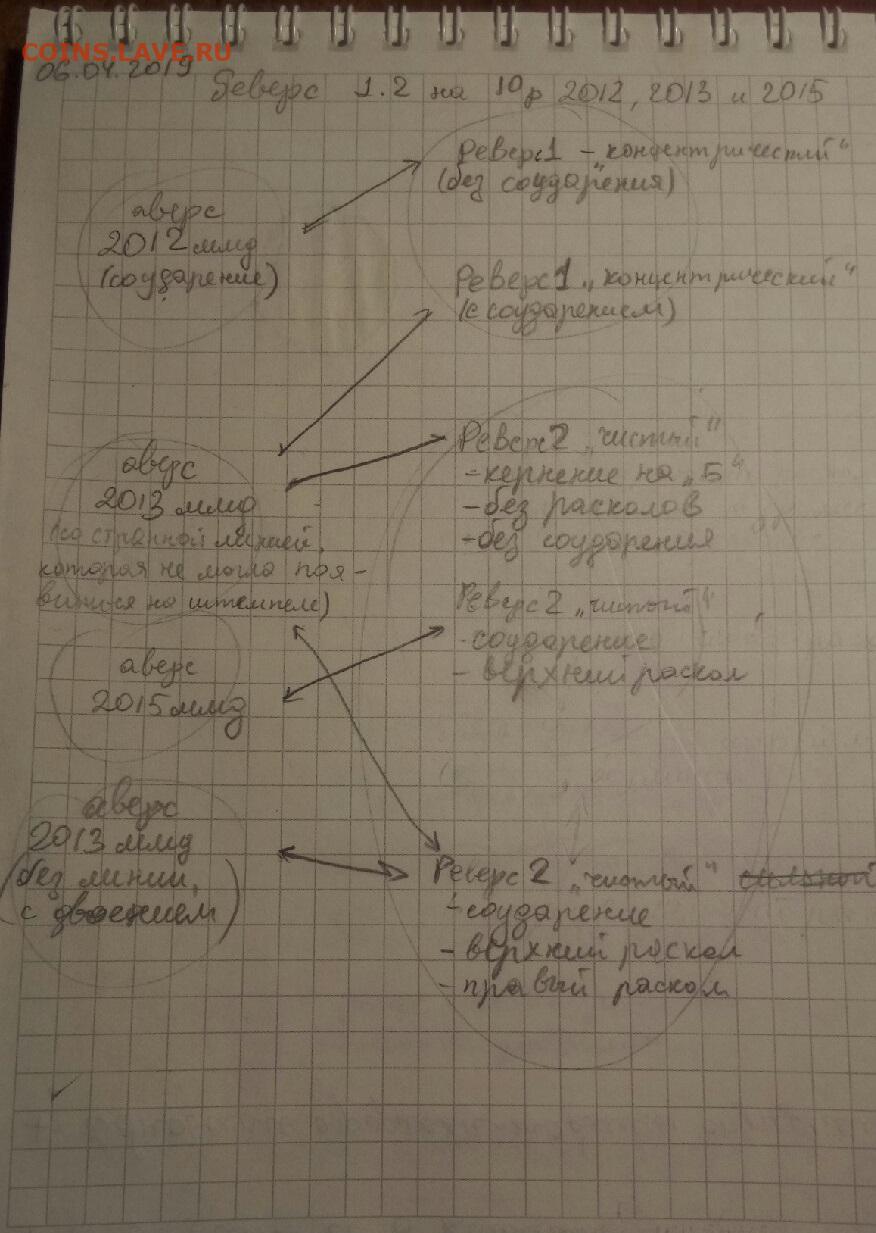 COINS.LAVE.RU
06.04.2019
Реверс 1.2 на 10р 2012, 2013 и 2015
Реверс1 - „концентрический“
(без соударения)
аверс
2012 ммд
(соударение)
Реверс1 „концентрический“
(с соударением)
аверс
2013 ммд
(со странной линией,
которая не могла поя-
виться на штемпеле)
Реверс2 „чистый“
-кернение на „Б“
-без расколов
-без соударения
Реверс2 „чистый“
-соударение
- верхний раскол
аверс
2015 ммд
аверс
2013 ммд
(без линии,
с двоением)
Реверс2 „чистый“
-соударение
- верхний раскол
- правый раскол